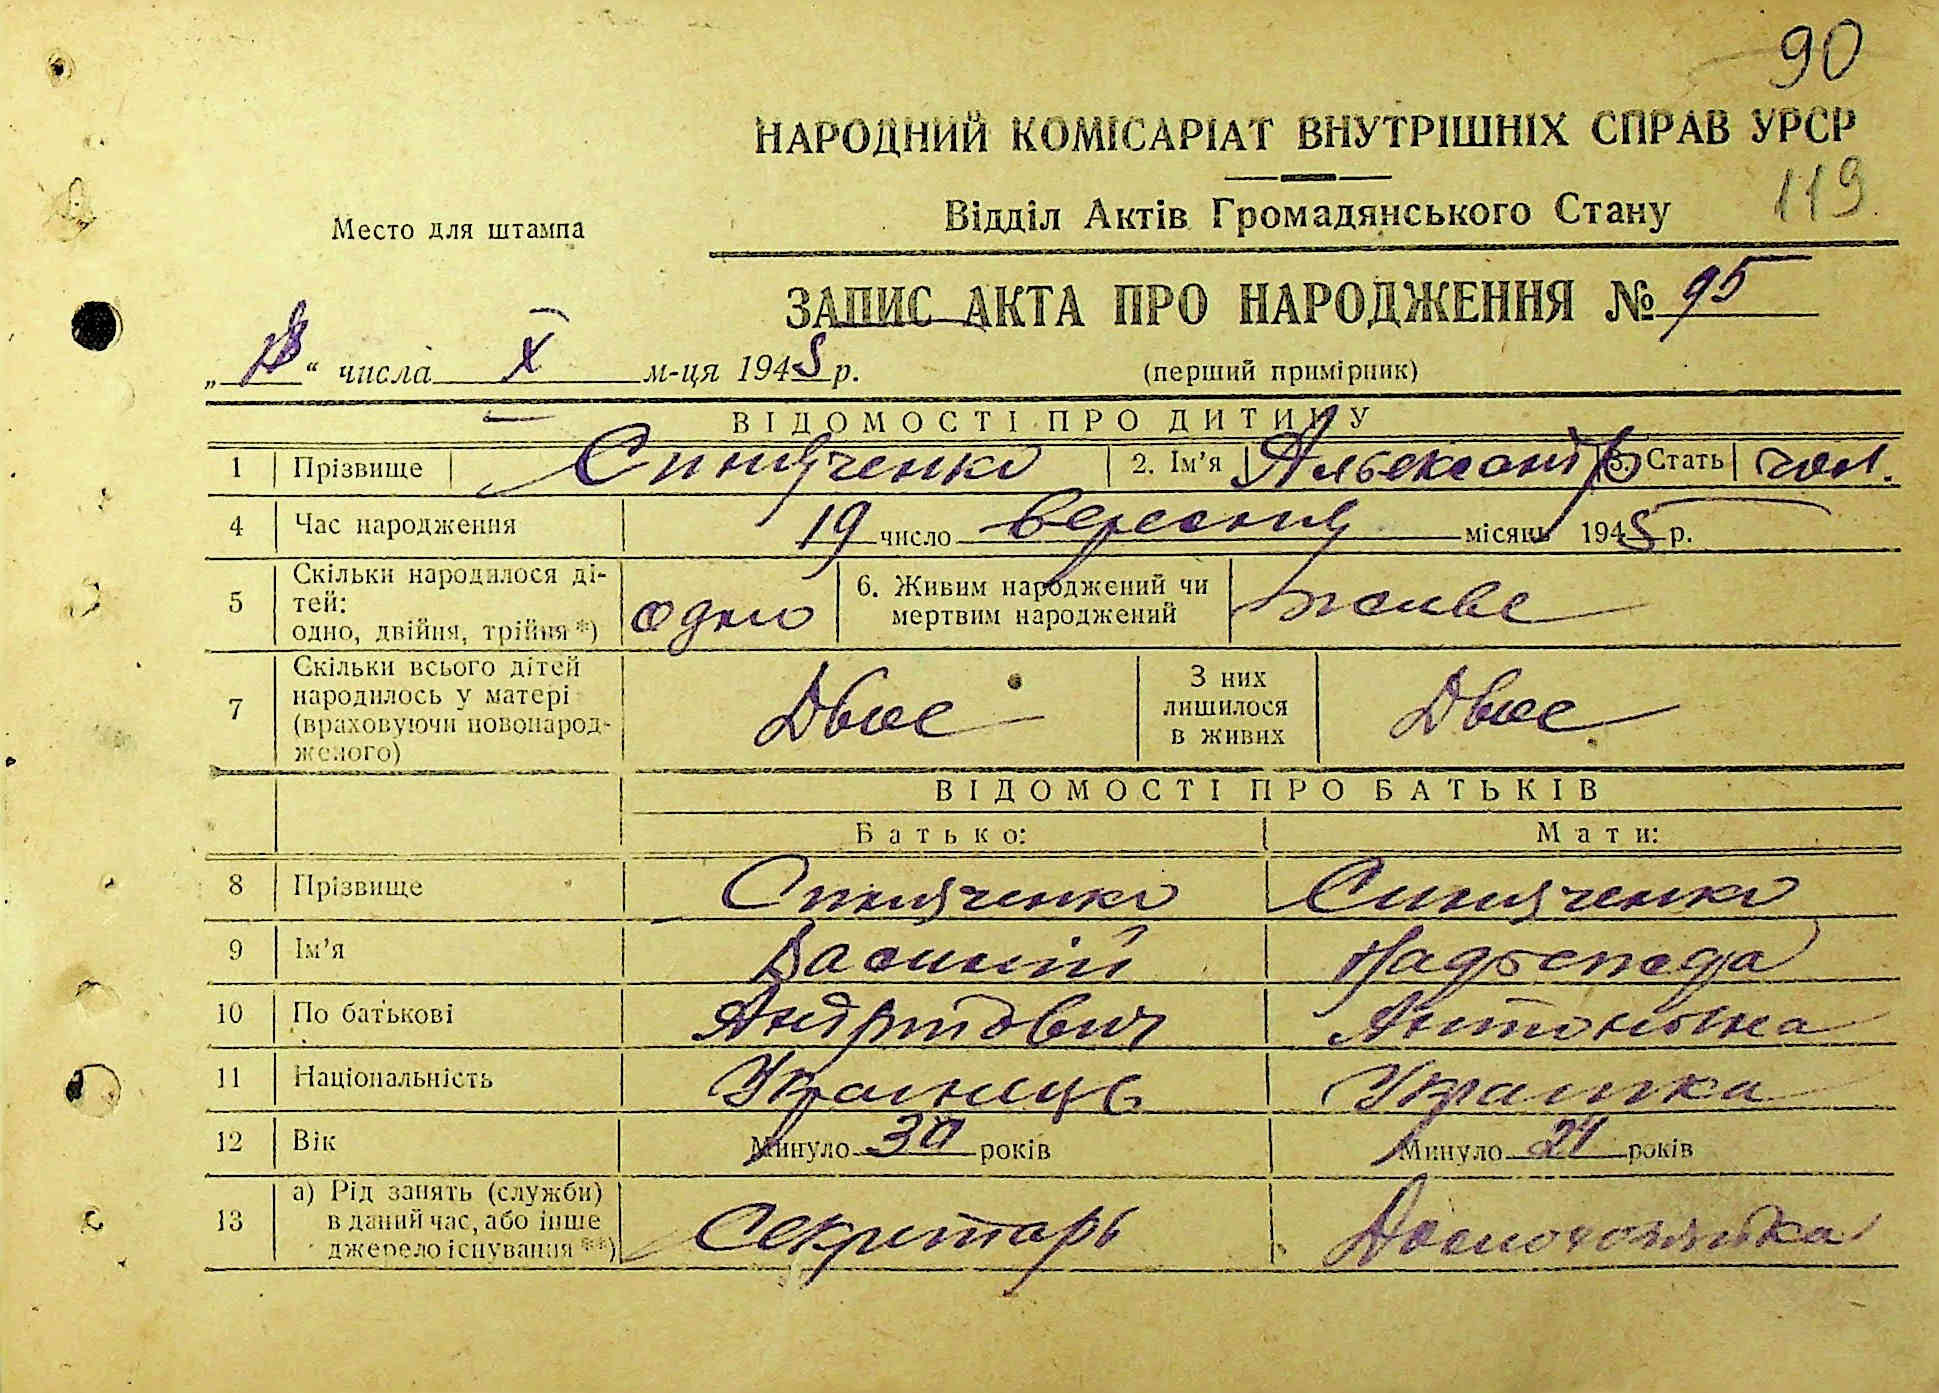 90
НАРОДНИЙ КОМІСАРІАТ ВНУТРІШНІХ СПРАВ УРСР
119
Відділ Актів Громадянського Стану
Место для штампа
ЗАПИС АКТА ПРО НАРОДЖЕННЯ № 95
„ “ числа X м-ця 1945 р. (перший примірник)
ВІДОМОСТІ ПРО ДИТИНУ
1 Прізвище Синяченко 2. Ім'я Александр 3. Стать чол.
4 Час народження 19 число вересня місяць 1945 р.
5 Скільки народилося ді-
тей:
одно, двійня, трійня *) одно 6. Живим народжений чи
мертвим народжений живе
7 Скільки всього дітей
народилось у матері
(враховуючи новонарод-
женого) Двое З них
лишилося
в живих Двое
ВІДОМОСТІ ПРО БАТЬКІВ
Батько: Мати:
8 Прізвище Синяченко Синяченко
9 Ім'я Василій Надежда
10 По батькові Андрійович Антоновна
11 Національність Українець Українка
12 Вік Минуло 30 років Минуло 24 років
13 а) Рід занять (служби)
в даний час, або інше
джерело існування **) Секретарь Домохозяйка